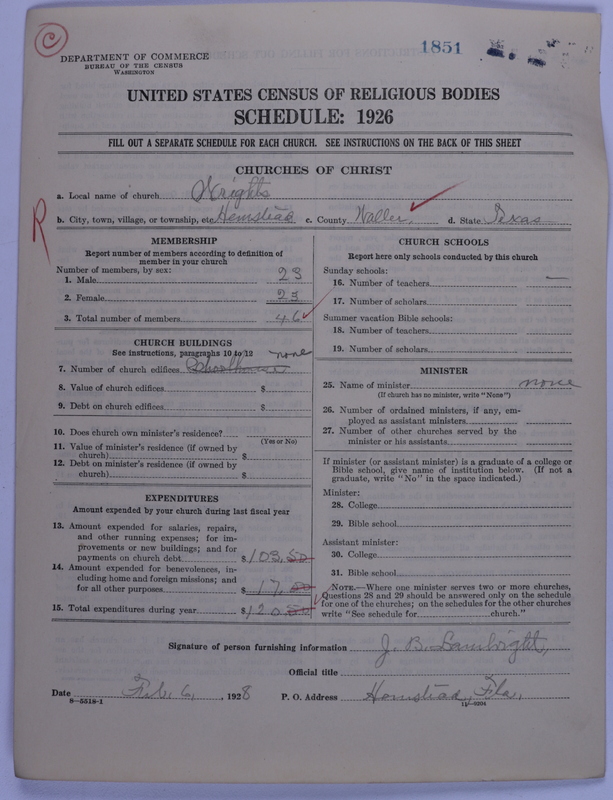 C
1851
DEPARTMENT OF COMMERCE
BUREAU OF THE CENSUS
WASHINGTON
UNITED STATES CENSUS OF RELIGIOUS BODIES
SCHEDULE: 1926
FILL OUT A SEPARATE SCHEDULE FOR EACH CHURCH. SEE INSTRUCTIONS ON THE BACK OF THIS SHEET
CHURCHES OF CHRIST
a. Local name of church Wrights
R
b. City, town, village, or township, etc. Hemstead c. County Waller d. State Texas
MEMBERSHIP
Report number of members according to definition of
member in your church
Number of members, by sex:
1. Male 23
2. Female 23
3. Total number of members 46
CHURCH BUILDINGS
See instructions, paragraphs 10 to 12
none
7. Number of church edifices Schoolhouse
8. Value of church edifices $
9. Debt on church edifices $
10. Does church own minister's residence?
(Yes or No)
11. Value of minister's residence (if owned by
church) $
12. Debt on minister's residence (if owned by
church) $
EXPENDITURES
Amount expended by your church during last fiscal year
13. Amount expended for salaries, repairs,
and other running expenses; for im-
provements or new buildings; and for
payments on church debt $103.50
14. Amount expended for benevolences, in-
cluding home and foreign missions; and
for all other purposes $17.00
15. Total expenditures during year $120.50
CHURCH SCHOOLS
Report here only schools conducted by this church
Sunday schools:
16. Number of teachers —
17. Number of scholars
Summer vacation Bible schools:
18. Number of teachers
19. Number of scholars
MINISTER
25. Name of minister none
(If church has no minister, write "None")
26. Number of ordained ministers, if any, em-
ployed as assistant ministers
27. Number of other churches served by the
minister or his assistants
If minister (or assistant minister) is a graduate of a college or
Bible school, give name of institution below. (If not a
graduate, write "No" in the space indicated.)
Minister:
28. College
29. Bible school
Assistant minister:
30. College
31. Bible school
NOTE.—Where one minister serves two or more churches,
Questions 28 and 29 should be answered only on the schedule
for one of the churches; on the schedules for the other churches
write "See schedule for church."
Signature of person furnishing information J. B. Lambright
Official title
Date Feb. 6, , 1928 P. O. Address Hemstead,
8—5518-1
11—9204